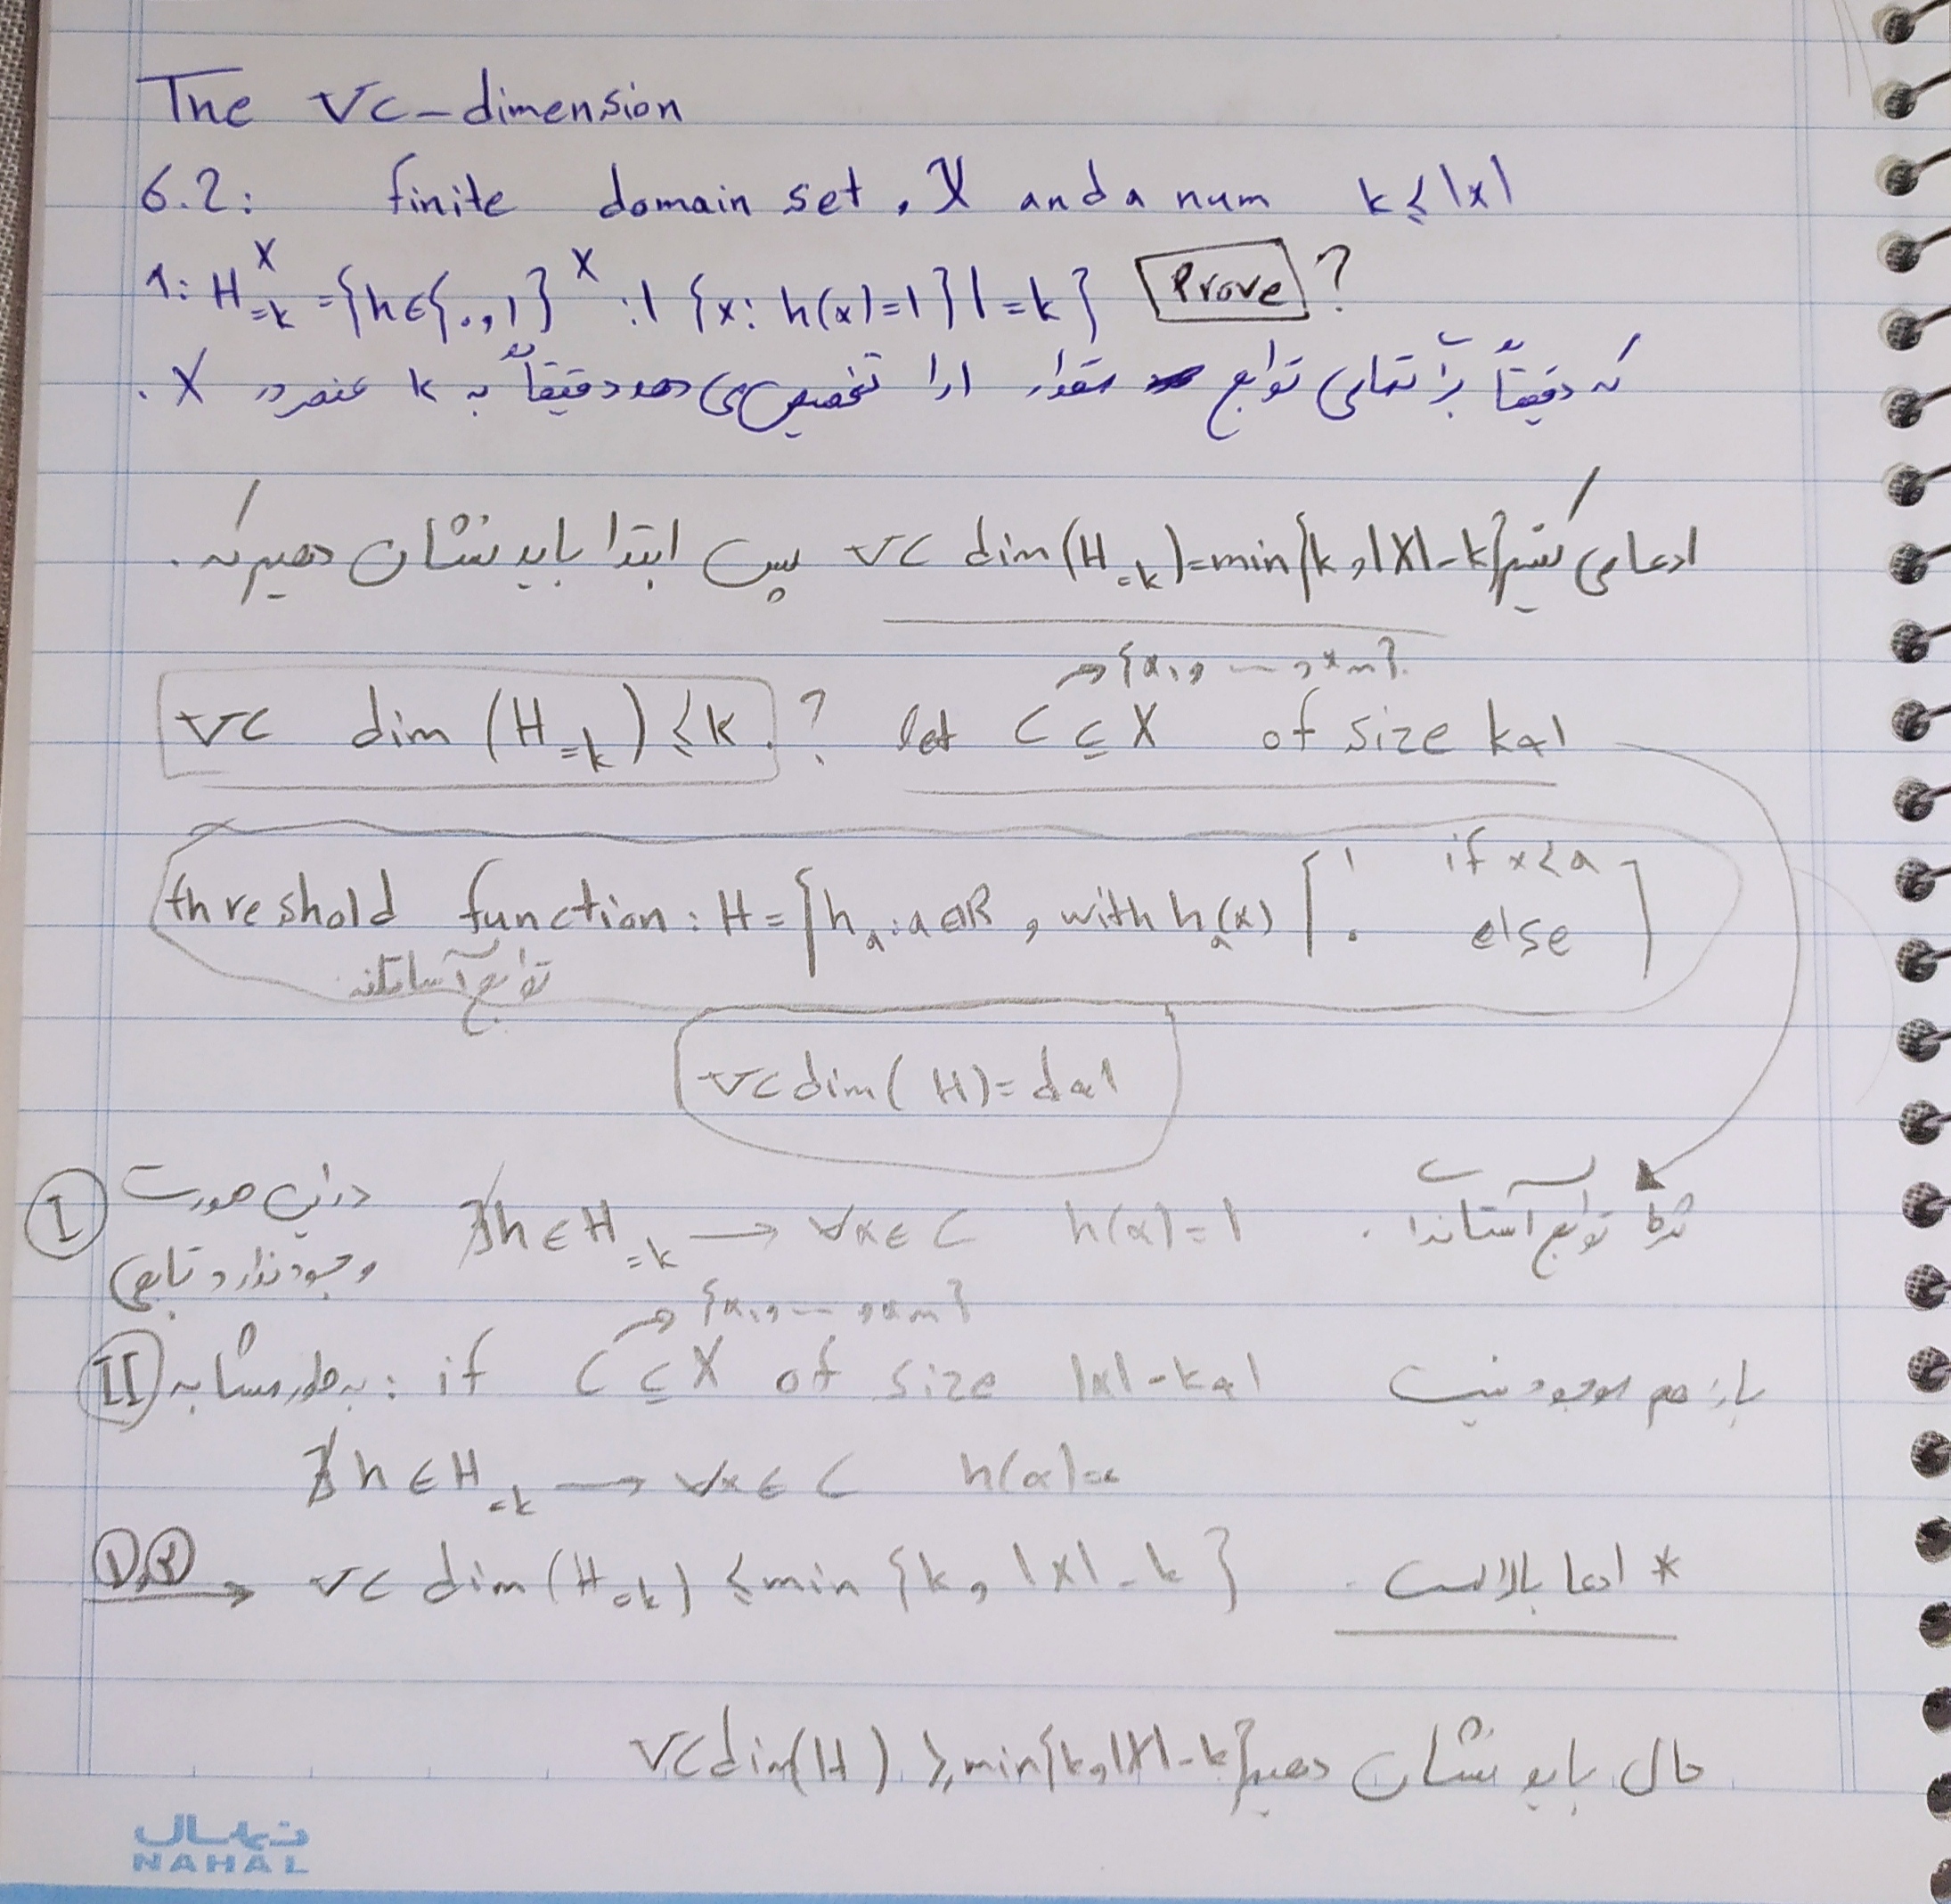 The VC-dimension
6.2: finite domain set, X and a num k ≤ |x|
1: H_{=k}^X = {h ∈ {0,1}^X : |{x: h(x)=1}| = k} Prove ?
که دقیقاً برا تمامی توابع مقدار 1 را تخصیص می دهد دقیقاً به k عنصر در X.
ادعا می کنیم VC dim(H_{=k}) = min{k, |X|-k} پس ابتدا باید نشان دهیم که.
→ {x1, ---, xm}.
VC dim (H_{=k}) ≤ k. ? let C ⊆ X of size k+1
threshold function: H = {h_a : a ∈ R, with h_a(x) [1 if x<a
0 else]
توابع آستانه
VC dim(H) = d+1
I در این صورت وجود ندارد تابعی ∄h ∈ H_{=k} → ∀x ∈ C h(x)=1 توابع آستاندا.
→ {x1, ---, xm}
II به طور مشابه: if C ⊆ X of size |x|-k+1 باز هم موجود نیست
∄h ∈ H_{=k} → ∀x ∈ C h(x)=0
1,2 → VC dim(H_{=k}) ≤ min {k, |X|-k} * ادعا بالاست.
حال باید نشان دهیم VC dim(H) ≥ min{k, |X|-k}
نهال
NAHAL